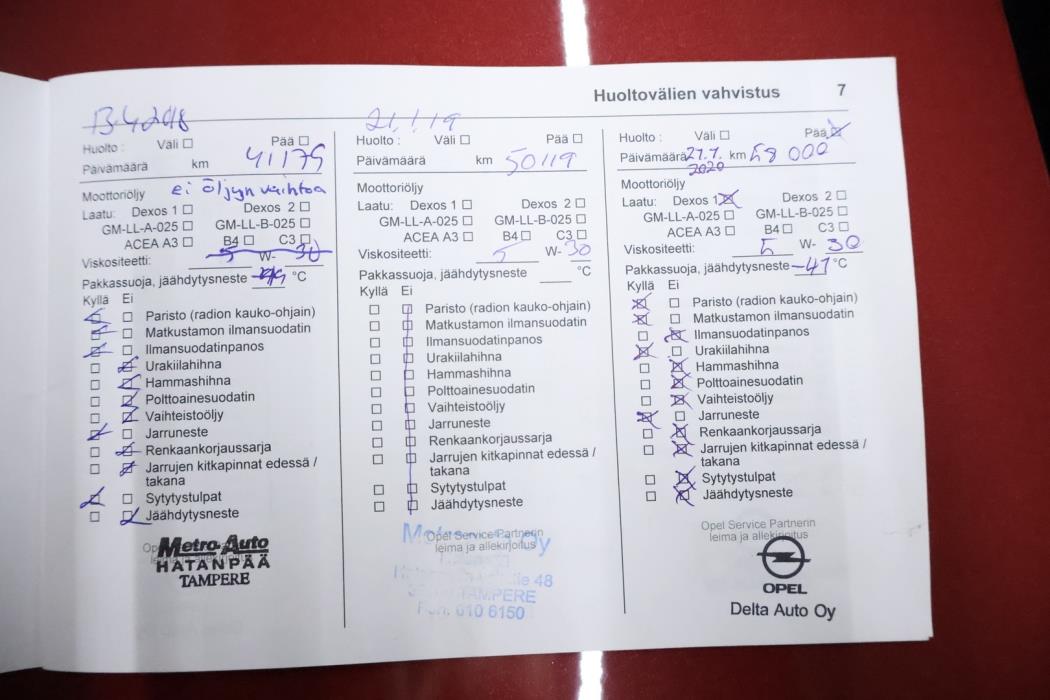 Huoltovälien vahvistus 7
13.4.2018
Huolto : Väli ☐ Pää ☐
Päivämäärä km 41175
Moottoriöljy ei öljyn vaihtoa
Laatu: Dexos 1 ☐ Dexos 2 ☐
GM-LL-A-025 ☐ GM-LL-B-025 ☐
ACEA A3 ☐ B4 ☐ C3 ☐
Viskositeetti: 5 W- 30
Pakkassuoja, jäähdytysneste °C
Kyllä Ei
Paristo (radion kauko-ohjain)
Matkustamon ilmansuodatin
Ilmansuodatinpanos
Urakiilahihna
Hammashihna
Polttoainesuodatin
Vaihteistoöljy
Jarruneste
Renkaankorjaussarja
Jarrujen kitkapinnat edessä /
takana
Sytytystulpat
Jäähdytysneste
Metro-Auto
HATANPÄÄ
TAMPERE
21.1.19
Huolto : Väli ☐ Pää ☐
Päivämäärä km 50119
Moottoriöljy
Laatu: Dexos 1 ☐ Dexos 2 ☐
GM-LL-A-025 ☐ GM-LL-B-025 ☐
ACEA A3 ☐ B4 ☐ C3 ☐
Viskositeetti: 5 W- 30
Pakkassuoja, jäähdytysneste °C
Kyllä Ei
Paristo (radion kauko-ohjain)
Matkustamon ilmansuodatin
Ilmansuodatinpanos
Urakiilahihna
Hammashihna
Polttoainesuodatin
Vaihteistoöljy
Jarruneste
Renkaankorjaussarja
Jarrujen kitkapinnat edessä /
takana
Sytytystulpat
Jäähdytysneste
Opel Service Partnerin
leima ja allekirjoitus
Oy
48
TAMPERE
Puh. 010 6150
Huolto : Väli ☐ Pää ☒
Päivämäärä 27.7. km 58 000
2020
Moottoriöljy
Laatu: Dexos 1 ☒ Dexos 2 ☐
GM-LL-A-025 ☐ GM-LL-B-025 ☐
ACEA A3 ☐ B4 ☐ C3 ☐
Viskositeetti: 5 W- 30
Pakkassuoja, jäähdytysneste -41 °C
Kyllä Ei
Paristo (radion kauko-ohjain)
Matkustamon ilmansuodatin
Ilmansuodatinpanos
Urakiilahihna
Hammashihna
Polttoainesuodatin
Vaihteistoöljy
Jarruneste
Renkaankorjaussarja
Jarrujen kitkapinnat edessä /
takana
Sytytystulpat
Jäähdytysneste
Opel Service Partnerin
leima ja allekirjoitus
OPEL
Delta Auto Oy